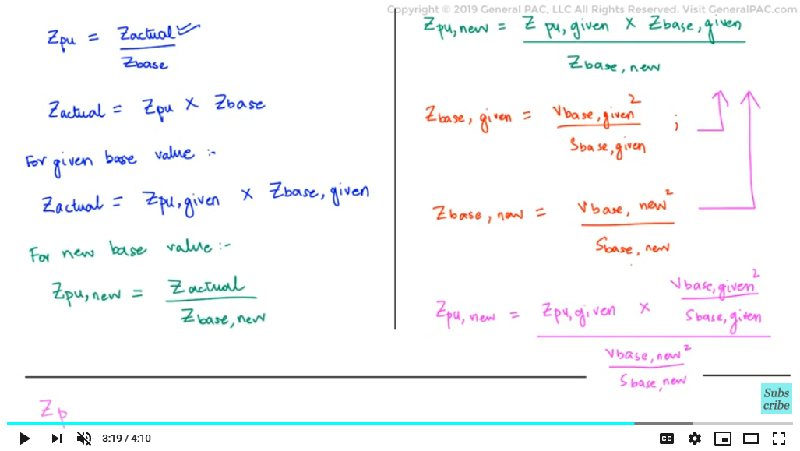 Copyright © 2019 General PAC, LLC All Rights Reserved. Visit GeneralPAC.com
Zpu = Zactual
Zbase
Zactual = Zpu × Zbase
For given base value :-
Zactual = Zpu,given × Zbase,given
For new base value:-
Zpu,new = Zactual
Zbase,new
Zpu,new = Zpu,given × Zbase,given
Zbase,new
Zbase,given = Vbase,given²
Sbase,given ;
Zbase,new = Vbase,new²
Sbase,new
Zpu,new = Zpu,given × Vbase,given²
Sbase,given
Vbase,new²
Sbase,new
Zp
Subs
cribe
3:19 / 4:10
CC